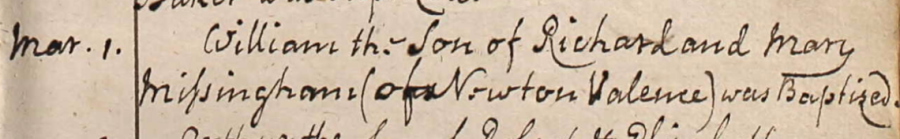 Mar. 1. William the Son of Richard and Mary
Miſsingham (of Newton Valence) was Baptized.